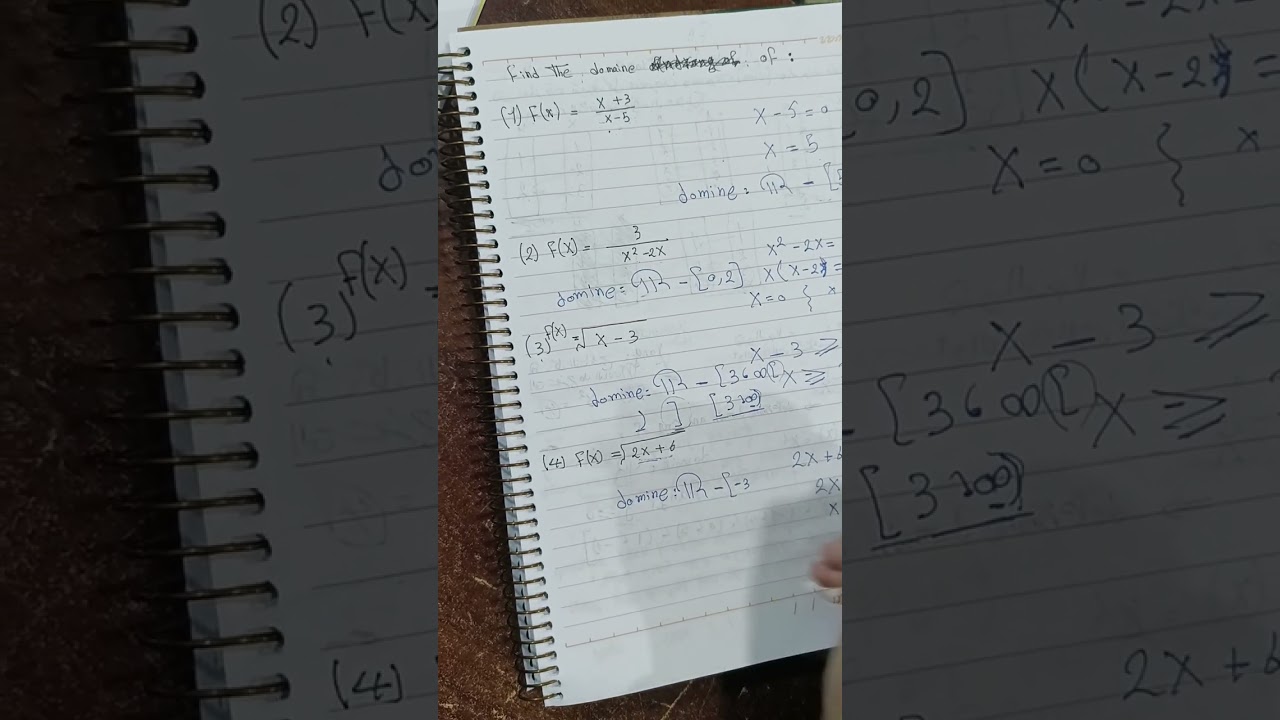 Find The domine of :
(1) F(x) = x+3 / x-5
x - 5 = 0
x = 5
domine: ℝ - [5
(2) F(x) = 3 / x² - 2x
x² - 2x =
domine = ℝ - [0,2] x(x-2) =
x = 0 { x
(3) f(x) = √x - 3
x - 3 ≥
domine = ℝ - [3 ∞ [ x ≥
] [3 ∞)
(4) F(x) = √2x + 6
2x + 6
domine: ℝ - [-3 2x
x